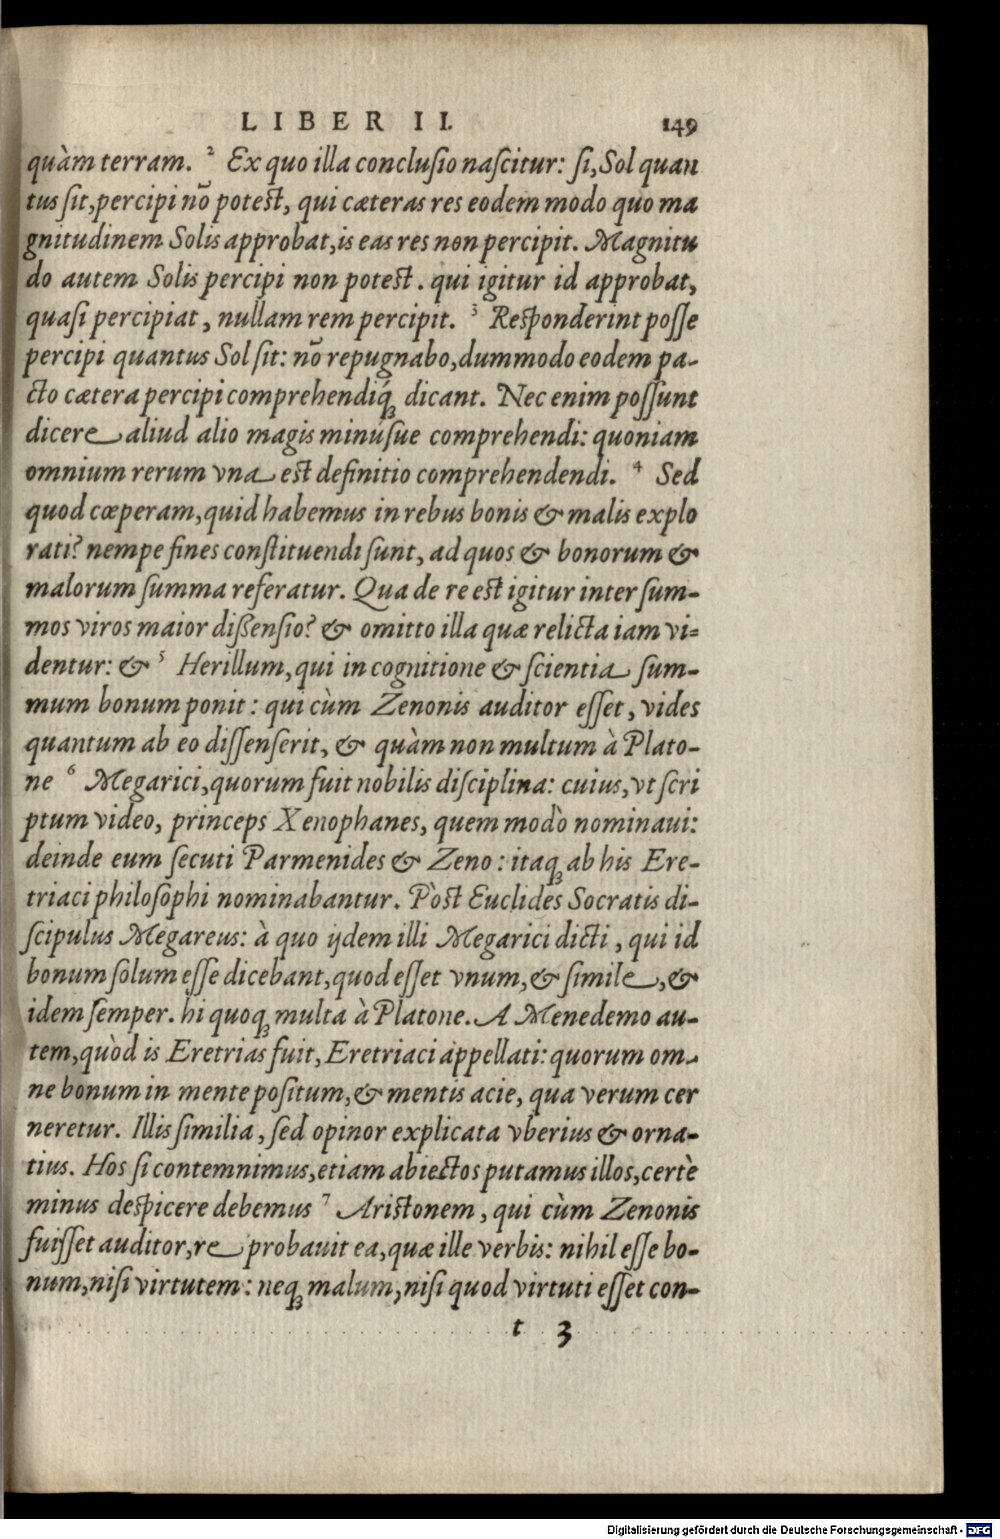 LIBER II. 149
quàm terram. ² Ex quo illa conclusio nascitur: si, Sol quan
tus sit, percipi nō potest, qui cæteras res eodem modo quo ma
gnitudinem Solis approbat, is eas res non percipit. Magnitu
do autem Solis percipi non potest. qui igitur id approbat,
quasi percipiat, nullam rem percipit. ³ Responderint posse
percipi quantus Sol sit: nō repugnabo, dummodo eodem pa-
cto cætera percipi comprehendiq́ꝫ dicant. Nec enim possunt
dicere aliud alio magis minúsue comprehendi: quoniam
omnium rerum vna est definitio comprehendendi. ⁴ Sed
quod cœperam, quid habemus in rebus bonis & malis explo
rati? nempe fines constituendi sunt, ad quos & bonorum &
malorum summa referatur. Qua de re est igitur inter sum-
mos viros maior dißensio? & omitto illa quæ relicta iam vi-
dentur: & ⁵ Herillum, qui in cognitione & scientia sum-
mum bonum ponit: qui cùm Zenonis auditor esset, vides
quantum ab eo dissenserit, & quàm non multum à Plato-
ne ⁶ Megarici, quorum fuit nobilis disciplina: cuius, vt scri
ptum video, princeps Xenophanes, quem modò nominaui:
deinde eum secuti Parmenides & Zeno: itaqꝫ ab his Ere-
triaci philosophi nominabantur. Pòst Euclides Socratis di-
scipulus Megareus: à quo ijdem illi Megarici dicti, qui id
bonum solum esse dicebant, quod esset vnum, & simile, &
idem semper. hi quoqꝫ multa à Platone. A Menedemo au-
tem, quòd is Eretrias fuit, Eretriaci appellati: quorum om-
ne bonum in mente positum, & mentis acie, qua verum cer
neretur. Illis similia, sed opinor explicata vberius & orna-
tius. Hos si contemnimus, etiam abiectos putamus illos, certè
minus despicere debemus ⁷ Aristonem, qui cùm Zenonis
fuisset auditor, re probauit ea, quæ ille verbis: nihil esse bo-
num, nisi virtutem: neqꝫ malum, nisi quod virtuti esset con-
t 3
Digitalisierung gefördert durch die Deutsche Forschungsgemeinschaft - DFG